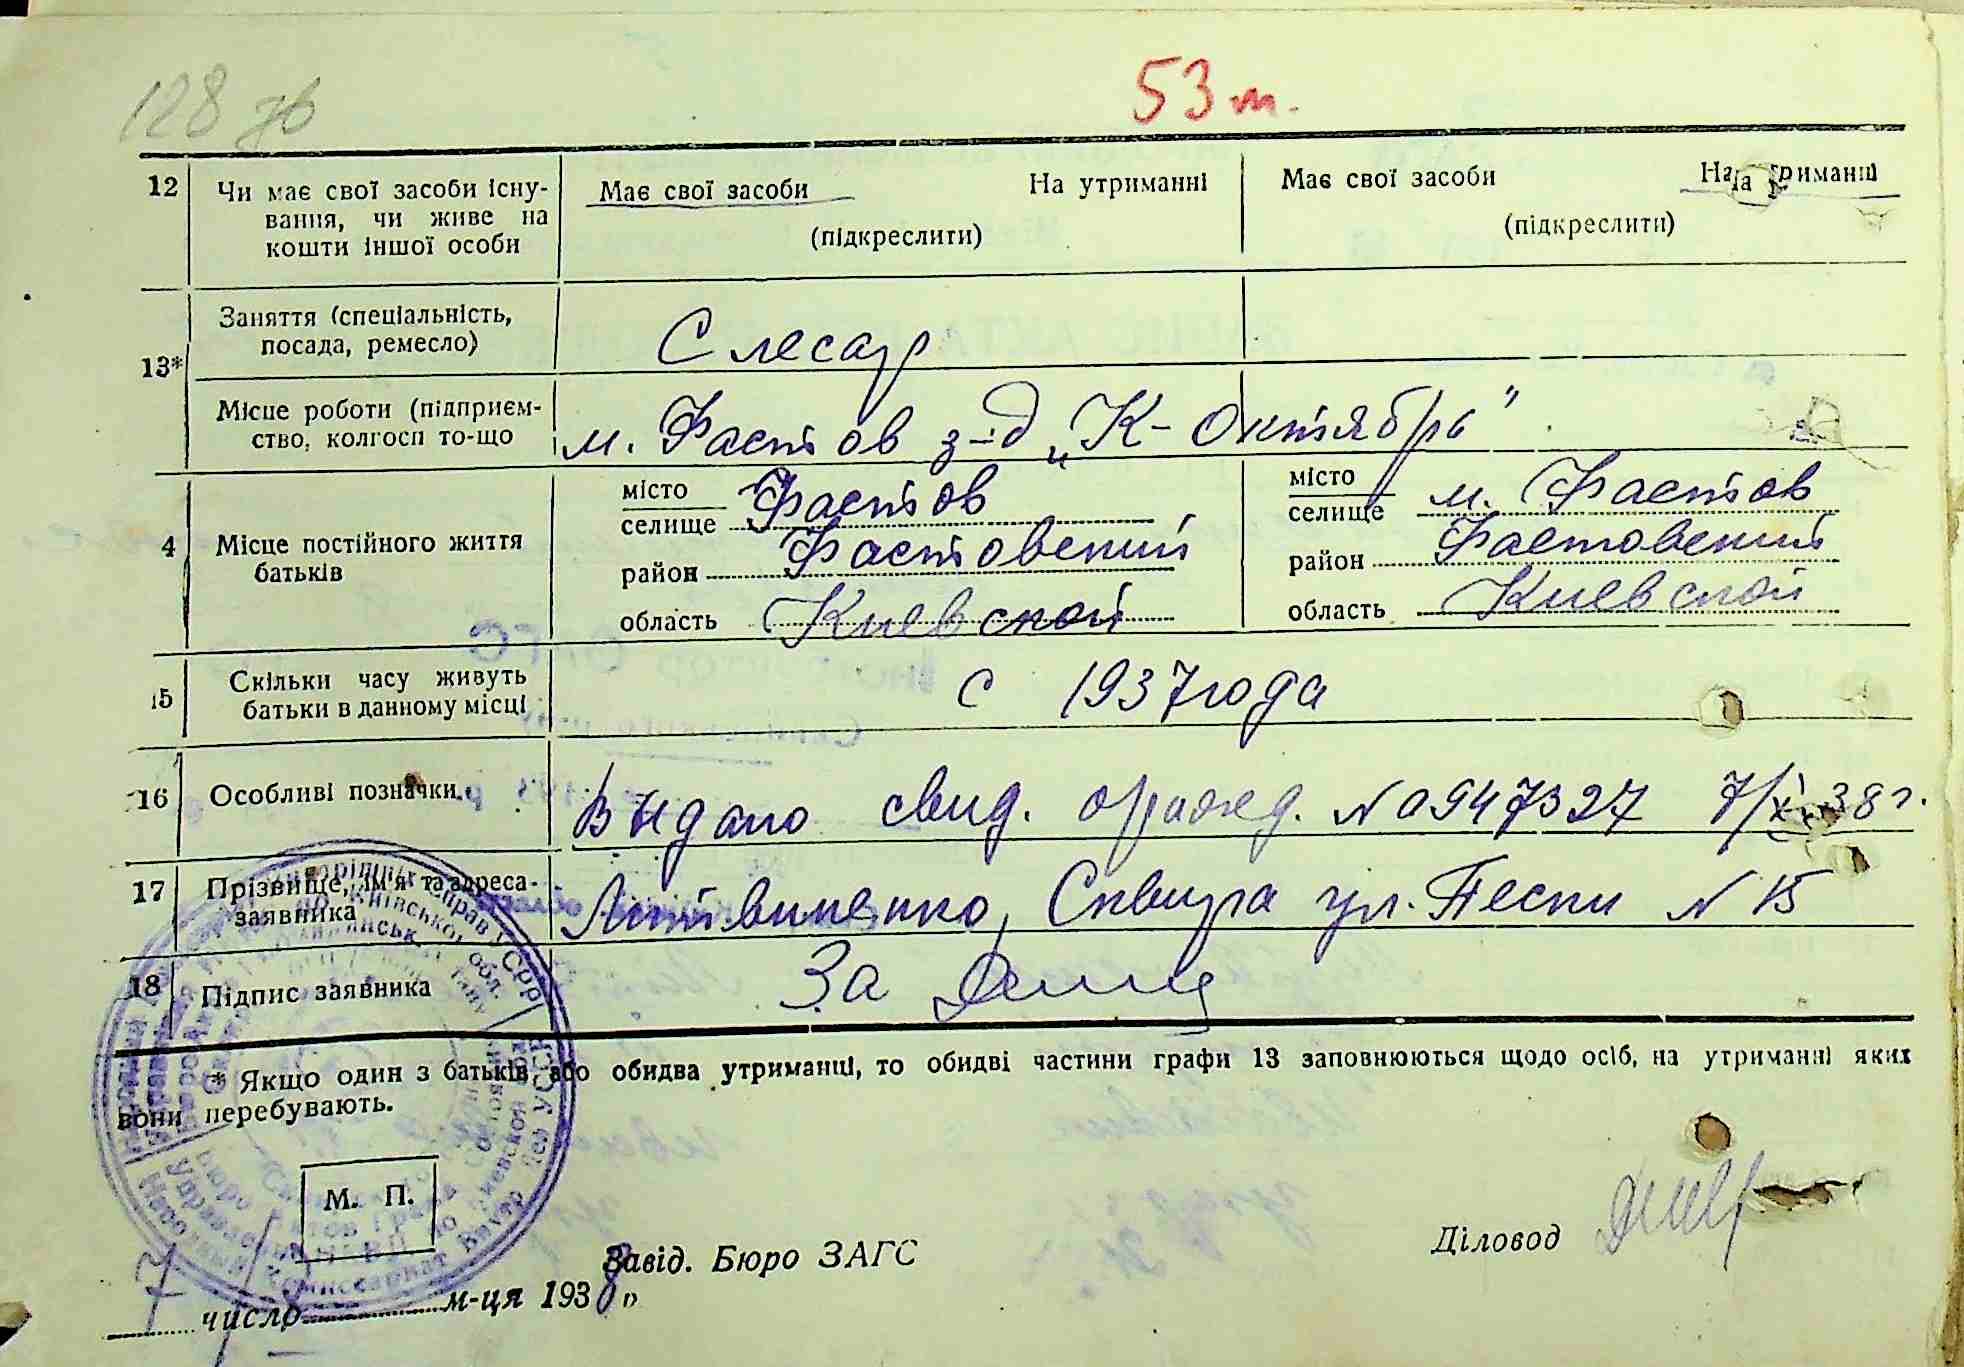 128 зв
53 т.
12 Чи має свої засоби існу-
вання, чи живе на
кошти іншої особи
Має свої засоби На утриманні
(підкреслити)
Має свої засоби На утриманні
(підкреслити)
13* Заняття (спеціальність,
посада, ремесло)
Слесар
Місце роботи (підприєм-
ство, колгосп то-що
м. Фастов з-д „К-Октябрь"
4 Місце постійного життя
батьків
місто
селище Фастов
район Фастовский
область Киевской
місто
селище м. Фастов
район Фастовский
область Киевской
15 Скільки часу живуть
батьки в данному місці
с 1937 года
16 Особливі позначки
Выдано свид. о рожд. № 0947327 7/XI 38 г.
17 Прізвище, ім'я та адреса
заявника
Литвиненко, Сквира ул. Пески № 15
18 Підпис заявника
За
* Якщо один з батьків або обидва утриманці, то обидві частини графи 13 заповнюються щодо осіб, на утриманні яких
вони перебувають.
М. П.
Завід. Бюро ЗАГС
Діловод
7 число м-ця 1938 р.